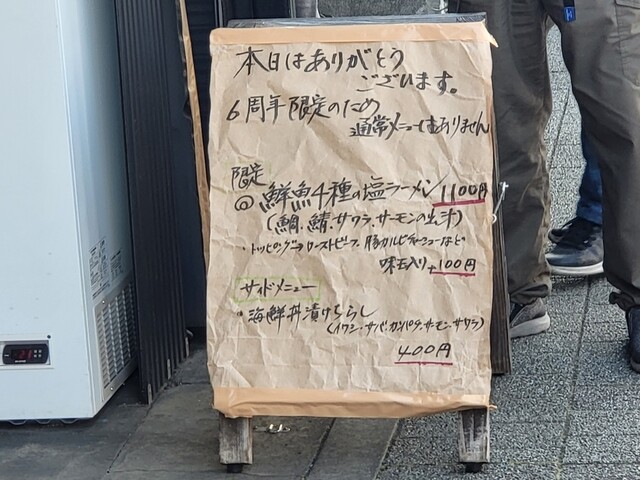 本日はありがとう
ございます。
6周年限定のため
通常メニューはありません
限定
◎ 鮮魚4種の塩ラーメン 1100円
(鯛、鯖、サワラ、サーモンの出汁)
・トッピング→ローストビーフ、豚カルビチャーシューなど
味玉入り+100円
サイドメニュー
海鮮丼漬けちらし
(イワシ・サバ・カンパチ・サーモン・サワラ)
400円